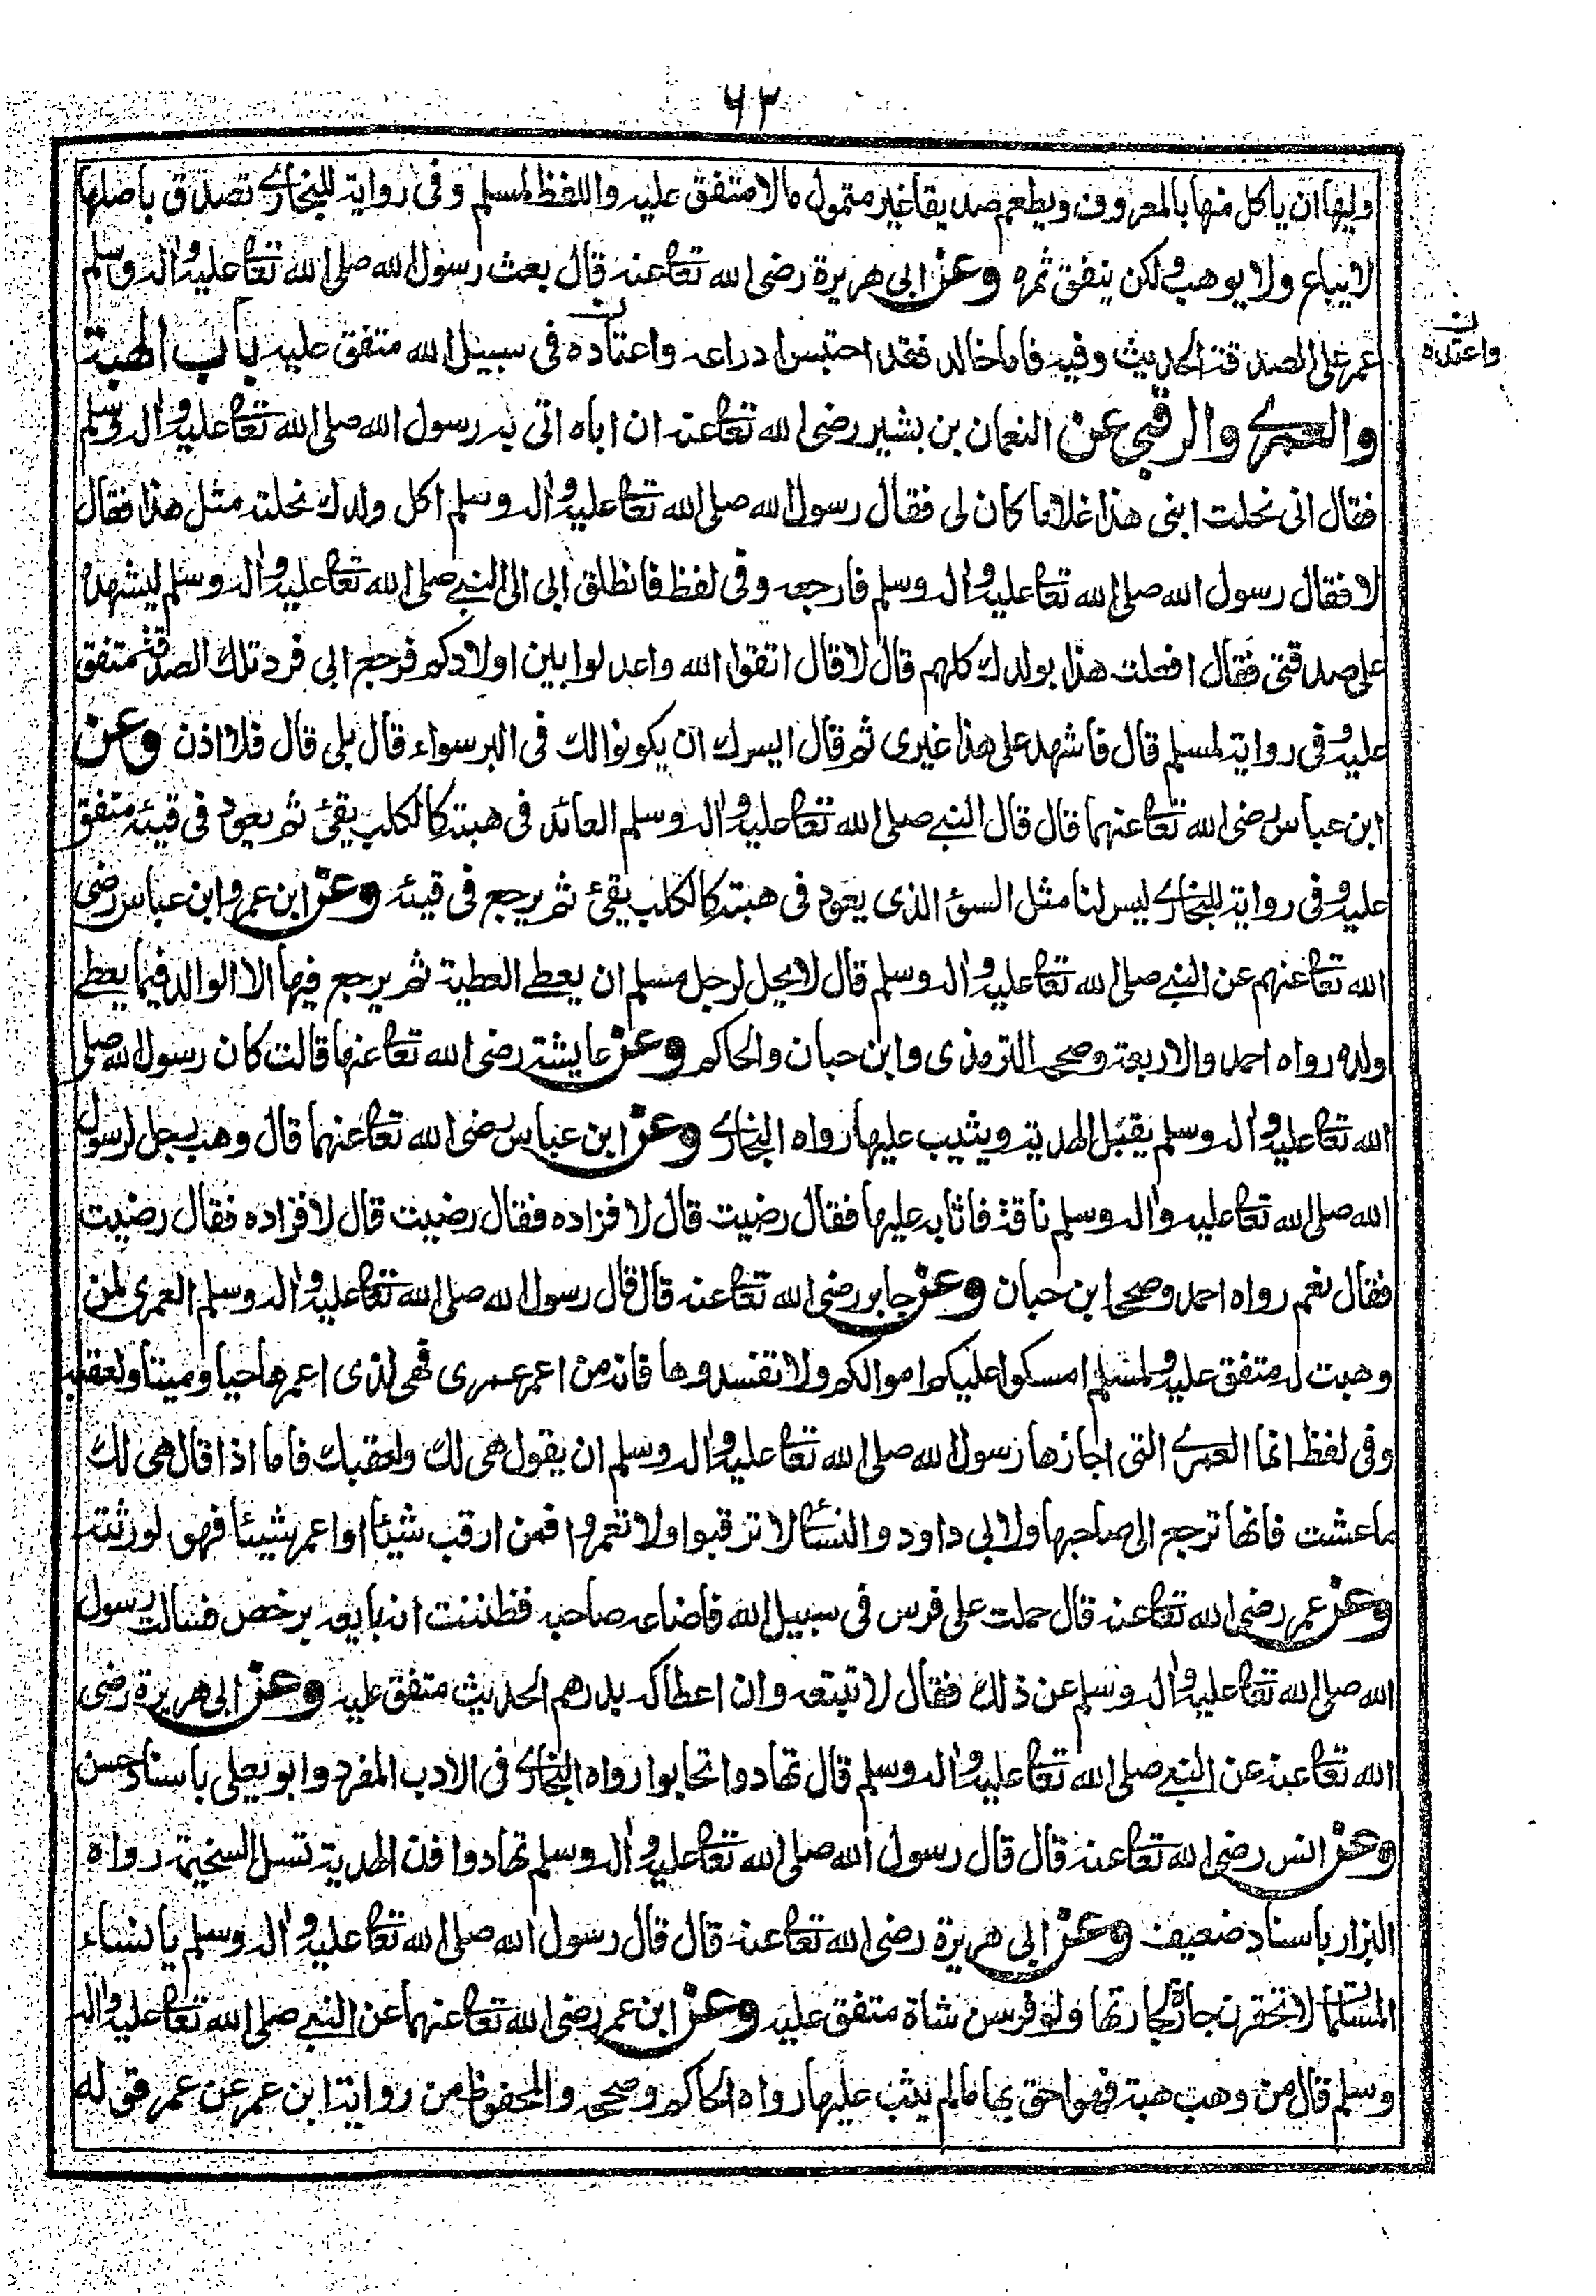 ۶۳
وليها ان ياكل منها بالمعروف ويطعم صديقا غير متمول مالا متفق عليه واللفظ لمسلم وفى رواية للبخارى تصدق باصلها
لا يباع ولا يوهب ولكن ينفق ثمره وعن ابى هريرة رضى الله تعا عنه قال بعث رسول الله صلى الله تعا عليه واله وسلم
عمر على الصدقة الحديث وفيه فاما خالد فقد احتبس ادراعه واعتاده فى سبيل الله متفق عليه باب الهبة
ن واعتده
والعمرى والرقبى عن النعمان بن بشير رضى الله تعا عنه ان اباه اتى به رسول الله صلى الله تعا عليه واله وسلم
فقال انى نحلت ابنى هذا غلاما كان لى فقال رسول الله صلى الله تعا عليه واله وسلم اكل ولدك نحلته مثل هذا فقال
لا فقال رسول الله صلى الله تعا عليه واله وسلم فارجعه وفى لفظ فانطلق ابى الى النبى صلى الله تعا عليه واله وسلم ليشهده
على صدقتى فقال افعلت هذا بولدك كلهم قال لا قال اتقوا الله واعدلوا بين اولادكم فرجع ابى فرد تلك الصدقة متفق
عليه وفى رواية لمسلم قال فاشهد على هذا غيرى ثم قال ايسرك ان يكونوا لك فى البر سواء قال بلى قال فلا اذن وعن
ابن عباس رضى الله تعا عنهما قال قال النبى صلى الله تعا عليه واله وسلم العائد فى هبته كالكلب يقئ ثم يعود فى قيئه متفق
عليه وفى رواية للبخارى ليس لنا مثل السوء الذى يعود فى هبته كالكلب يقئ ثم يرجع فى قيئه وعن ابن عمر وابن عباس رضى
الله تعا عنهم عن النبى صلى الله تعا عليه واله وسلم قال لا يحل لرجل مسلم ان يعطى العطية ثم يرجع فيها الا الوالد فيما يعطى
ولده رواه احمد والاربعة وصححه الترمذى وابن حبان والحاكم وعن عايشة رضى الله تعا عنها قالت كان رسول الله صلى
الله تعا عليه واله وسلم يقبل الهدية ويثيب عليها رواه البخارى وعن ابن عباس رضى الله تعا عنهما قال وهب رجل لرسول
الله صلى الله تعا عليه واله وسلم ناقة فاثابه عليها فقال رضيت قال لا فزاده فقال رضيت قال لا فزاده فقال رضيت
فقال نعم رواه احمد وصححه ابن حبان وعن جابر رضى الله تعا عنه قال قال رسول الله صلى الله تعا عليه واله وسلم العمرى لمن
وهبت له متفق عليه ولمسلم امسكوا عليكم اموالكم ولا تفسدوها فانه من اعمر عمرى فهى لذى اعمرها حيا وميتا ولعقبه
وفى لفظ انما العمرى التى اجازها رسول الله صلى الله تعا عليه واله وسلم ان يقول هى لك ولعقبك فاما اذا قال هى لك
ما عشت فانها ترجع الى صاحبها ولابى داود والنسائ لا ترقبوا ولا تعمروا فمن ارقب شيئا او اعمر شيئا فهو لورثته
وعن عمر رضى الله تعا عنه قال حملت على فرس فى سبيل الله فاضاعه صاحبه فظننت انه بايعه برخص فسالت رسول
الله صلى الله تعا عليه واله وسلم عن ذلك فقال لا تبتعه وان اعطاكه بدرهم الحديث متفق عليه وعن ابى هريرة رضى
الله تعا عنه عن النبى صلى الله تعا عليه واله وسلم قال تهادوا تحابوا رواه البخارى فى الادب المفرد وابو يعلى باسناد حسن
وعن انس رضى الله تعا عنه قال قال رسول الله صلى الله تعا عليه واله وسلم تهادوا فان الهدية تسل السخيمة رواه
البزار باسناد ضعيف وعن ابى هريرة رضى الله تعا عنه قال قال رسول الله صلى الله تعا عليه واله وسلم يا نساء
المسلمات لا تحقرن جارة لجارتها ولو فرسن شاة متفق عليه وعن ابن عمر رضى الله تعا عنهما عن النبى صلى الله تعا عليه واله
وسلم قال من وهب هبة فهو احق بها ما لم يثب عليها رواه الحاكم وصححه والمحفوظ من رواية ابن عمر عن عمر قوله